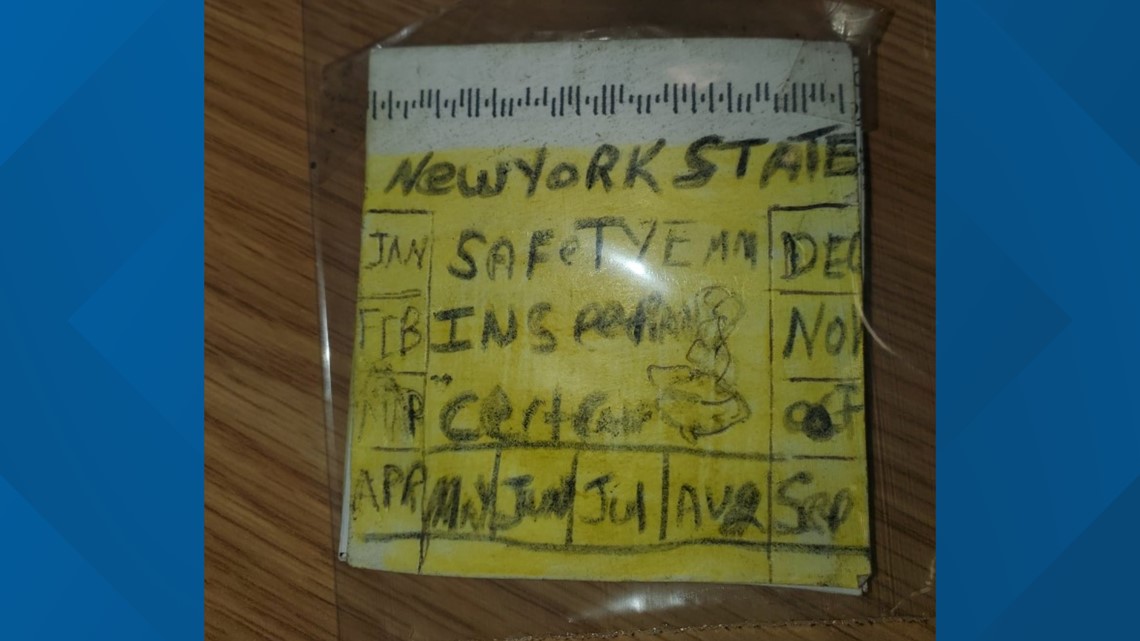 NewYoRK STATE
JAN SAFeTY EMM DEC
FEB INS NOV
OCT
APR MAY JUN JUL AUG SEP